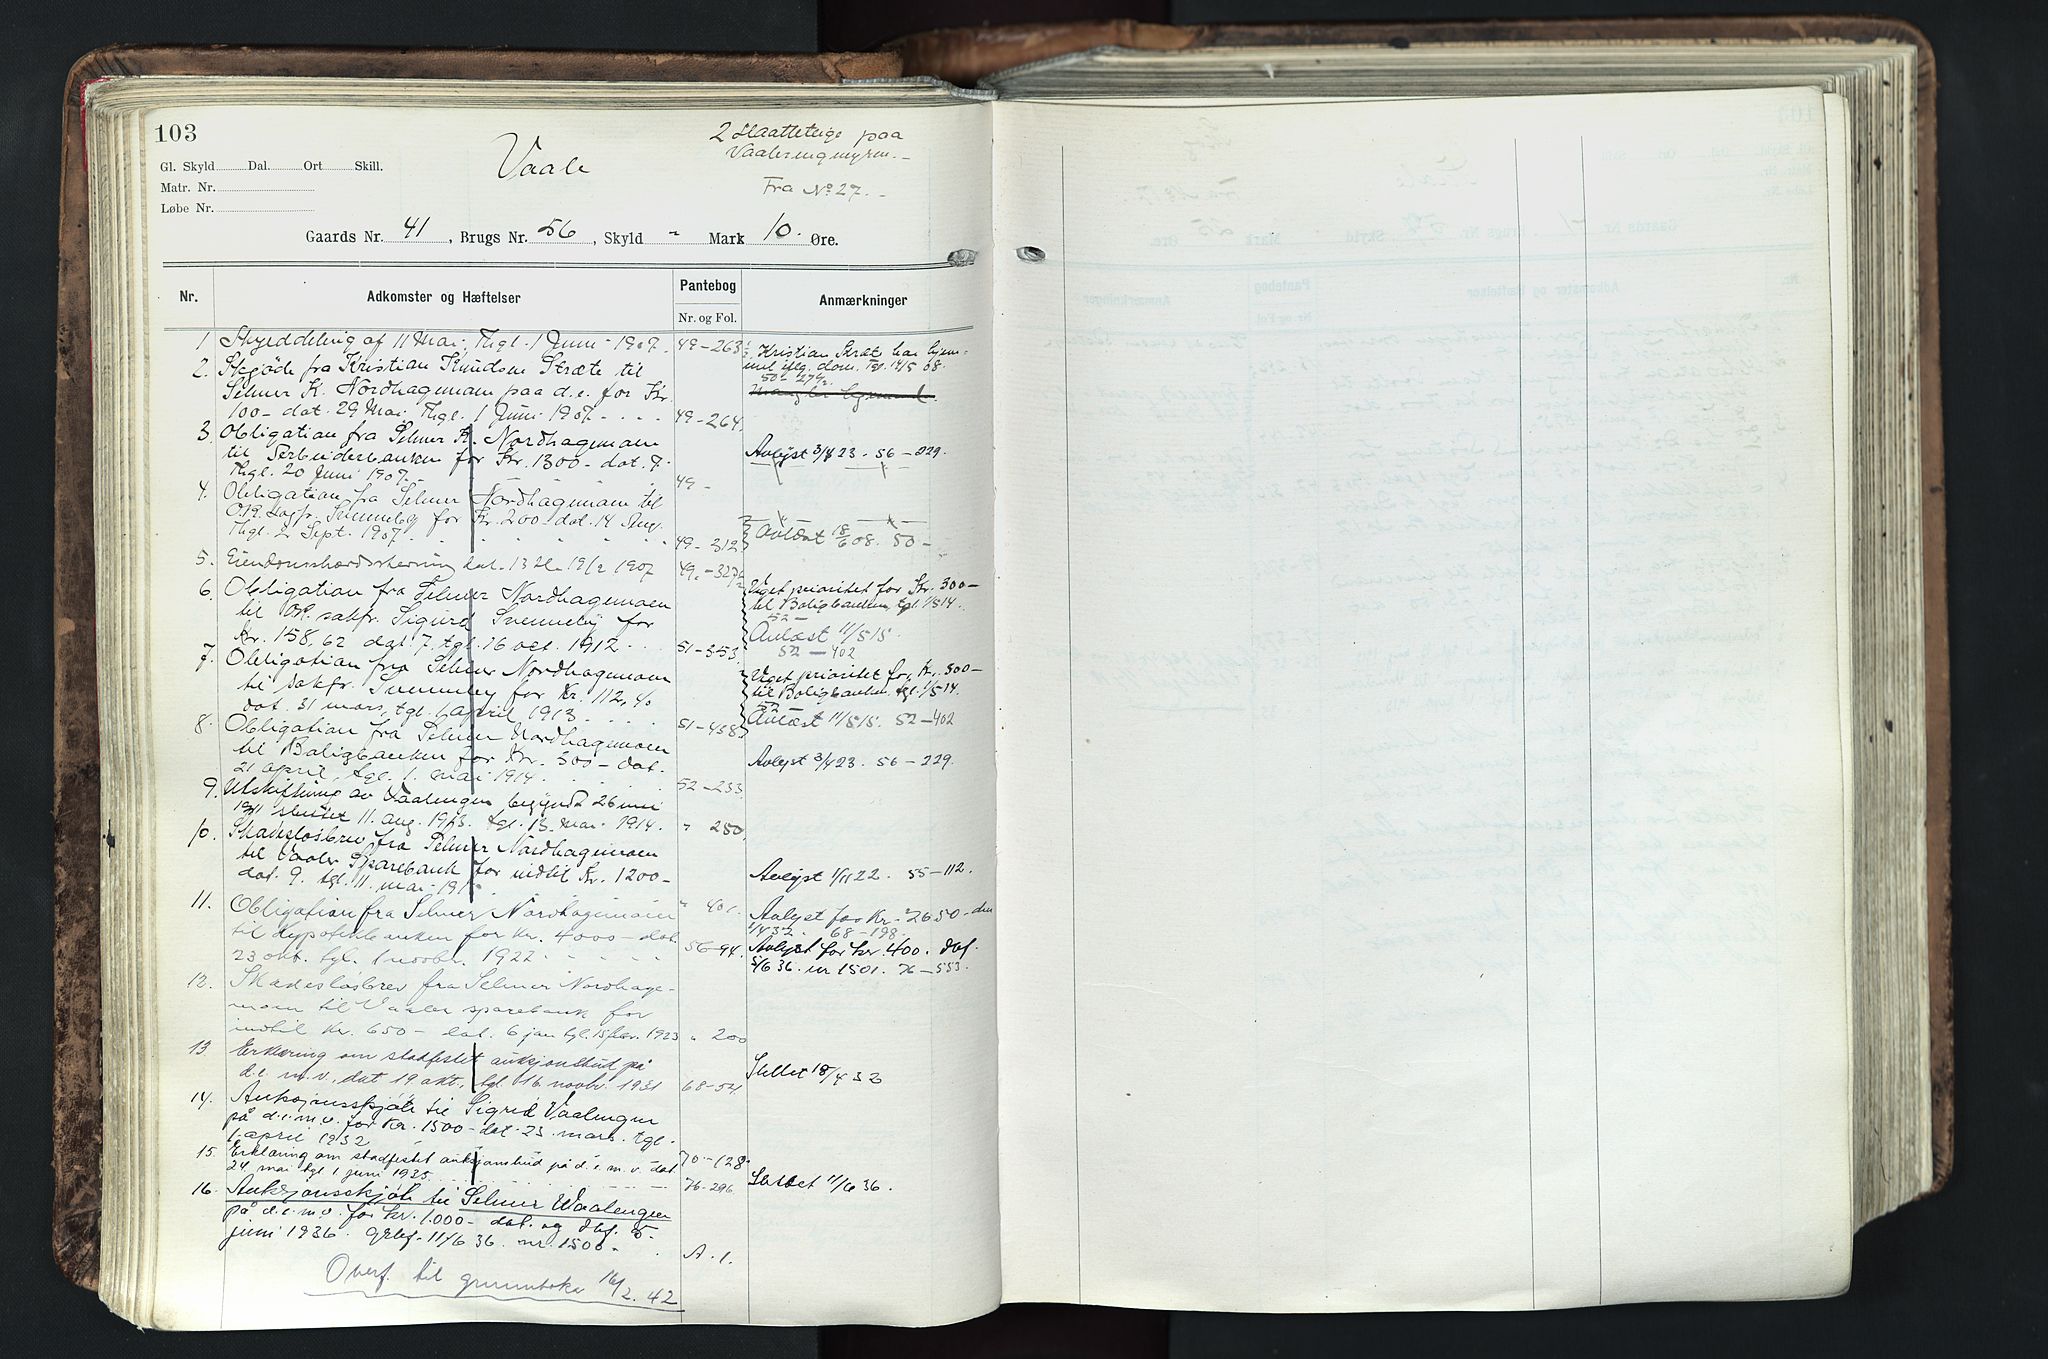 103
Vaale
2 Slaatteteige paa
Vaalerengmyren. -
Fra No 27. -
Gl. Skyld Dal. Ort Skill.
Matr. Nr.
Løbe Nr.
Gaards Nr. 41, Brugs Nr. 56, Skyld " Mark 10. Øre.
Nr. Adkomster og Hæftelser Pantebog Anmærkninger
Nr. og Fol.
1 Skylddeling af 11 Mai, Thgl. 1 Juni 1907. 49-263
2. Skjøde fra Kristian Knudsen Stræte til
Selmer K. Nordhagemoen paa d.e. for Kr.
100- dat. 29 Mai, Thgl. 1 Juni 1907. 49-264
Kristian Stræt har hjem-
mel iflg. dom. Tgl. 14/5 08.
50-274
Mangler hjemmel.
3. Obligation fra Selmer K. Nordhagemoen
til Arbeiderbanken for Kr. 1300- dat. 7.
Thgl. 20 Juni 1907. 49-
Avlyst 3/4 23. 56-229.
4. Obligation fra Selmer Nordhagemoen til
O.R. Sagfr. Svenneby for Kr. 200- dat. 14 Aug.
Thgl. 2 Sept. 1907. 49-312
Avlæst 18/6 08. 50-
5. dat. 13 19/12 1907 49-327
6. Obligation fra Selmer Nordhagemoen
til O.R. sakfr. Sigurd Svenneby for
Kr. 158,62 dat. 7, tgl. 16 oct. 1912 51-353
Veget prioritet for Kr. 300-
til Boligbanken, tgl. 1/5 14.
52-
Avlæst 11/5 15.
52-402
7. Obligation fra Selmer Nordhagemoen
til sakfr. Svenneby for Kr. 112,40
dat. 31 mars, tgl. 1 april 1913 51-458
Veget prioritet for Kr. 300-
til Boligbanken, tgl. 1/5 14.
52-
Avlæst 11/5 15. 52-402
8. Obligation fra Selmer Nordhagemoen
til Boligbanken for Kr. 300- dat.
21 april, tgl. 1. mai 1914. 52-233
Avlyst 3/4 23. 56-229.
9. Utskiftning av Vaalengen begyndt 26
1911 sluttet 11. aug. 1913. tgl. 13. mai 1914. " 250
10. Skadesløsbrev fra Selmer Nordhagemoen
til Vaaler Sparebank for indtil Kr. 1200-
dat. 9. tgl. 11. mai 191 " 401.
Avlyst 1/11 22. 55-112.
11. Obligation fra Selmer Nordhagemoen
til Hypotekbanken for Kr. 4000- dat.
23 okt. tgl. 1 novbr. 1922 56-94.
Avlyst for Kr. 2650- den
1/4 32. 68-198.
Avlyst for kr. 400. dbf.
5/6 36. nr 1501. 76-553.
12. Skadesløsbrev fra Selmer Nordhage-
moen til Vaaler sparebank for
indtil Kr. 650- dat. 6 jan tgl. 15 febr. 1923 " 200
13. Erklæring om stadfestet auksjonsbud på
d.e. m.v., dat 19 okt, tgl. 16 novbr. 1931 68-54
Slettet 18/4 32
14. Auksjonsskjøte til Sigrid Vaalengen
på d.e.m.v. for Kr. 1500- dat. 23. mars. tgl.
1. april 1932 70-128
15. Erklæring om stadfestet auksjonsbud på d.e. m.v. dat.
24 mai tgl 1 juni 1935 76-296
Slettet 11/6 36.
16. Auksjonsskjøte til Selmer Waalengen
på d.e.m.v. for kr. 1.000- dat. og dbf. 5-
juni 1936. 11/6 36. nr. 1500- A. 1.
Overf. til grunnboka 16/2. 42